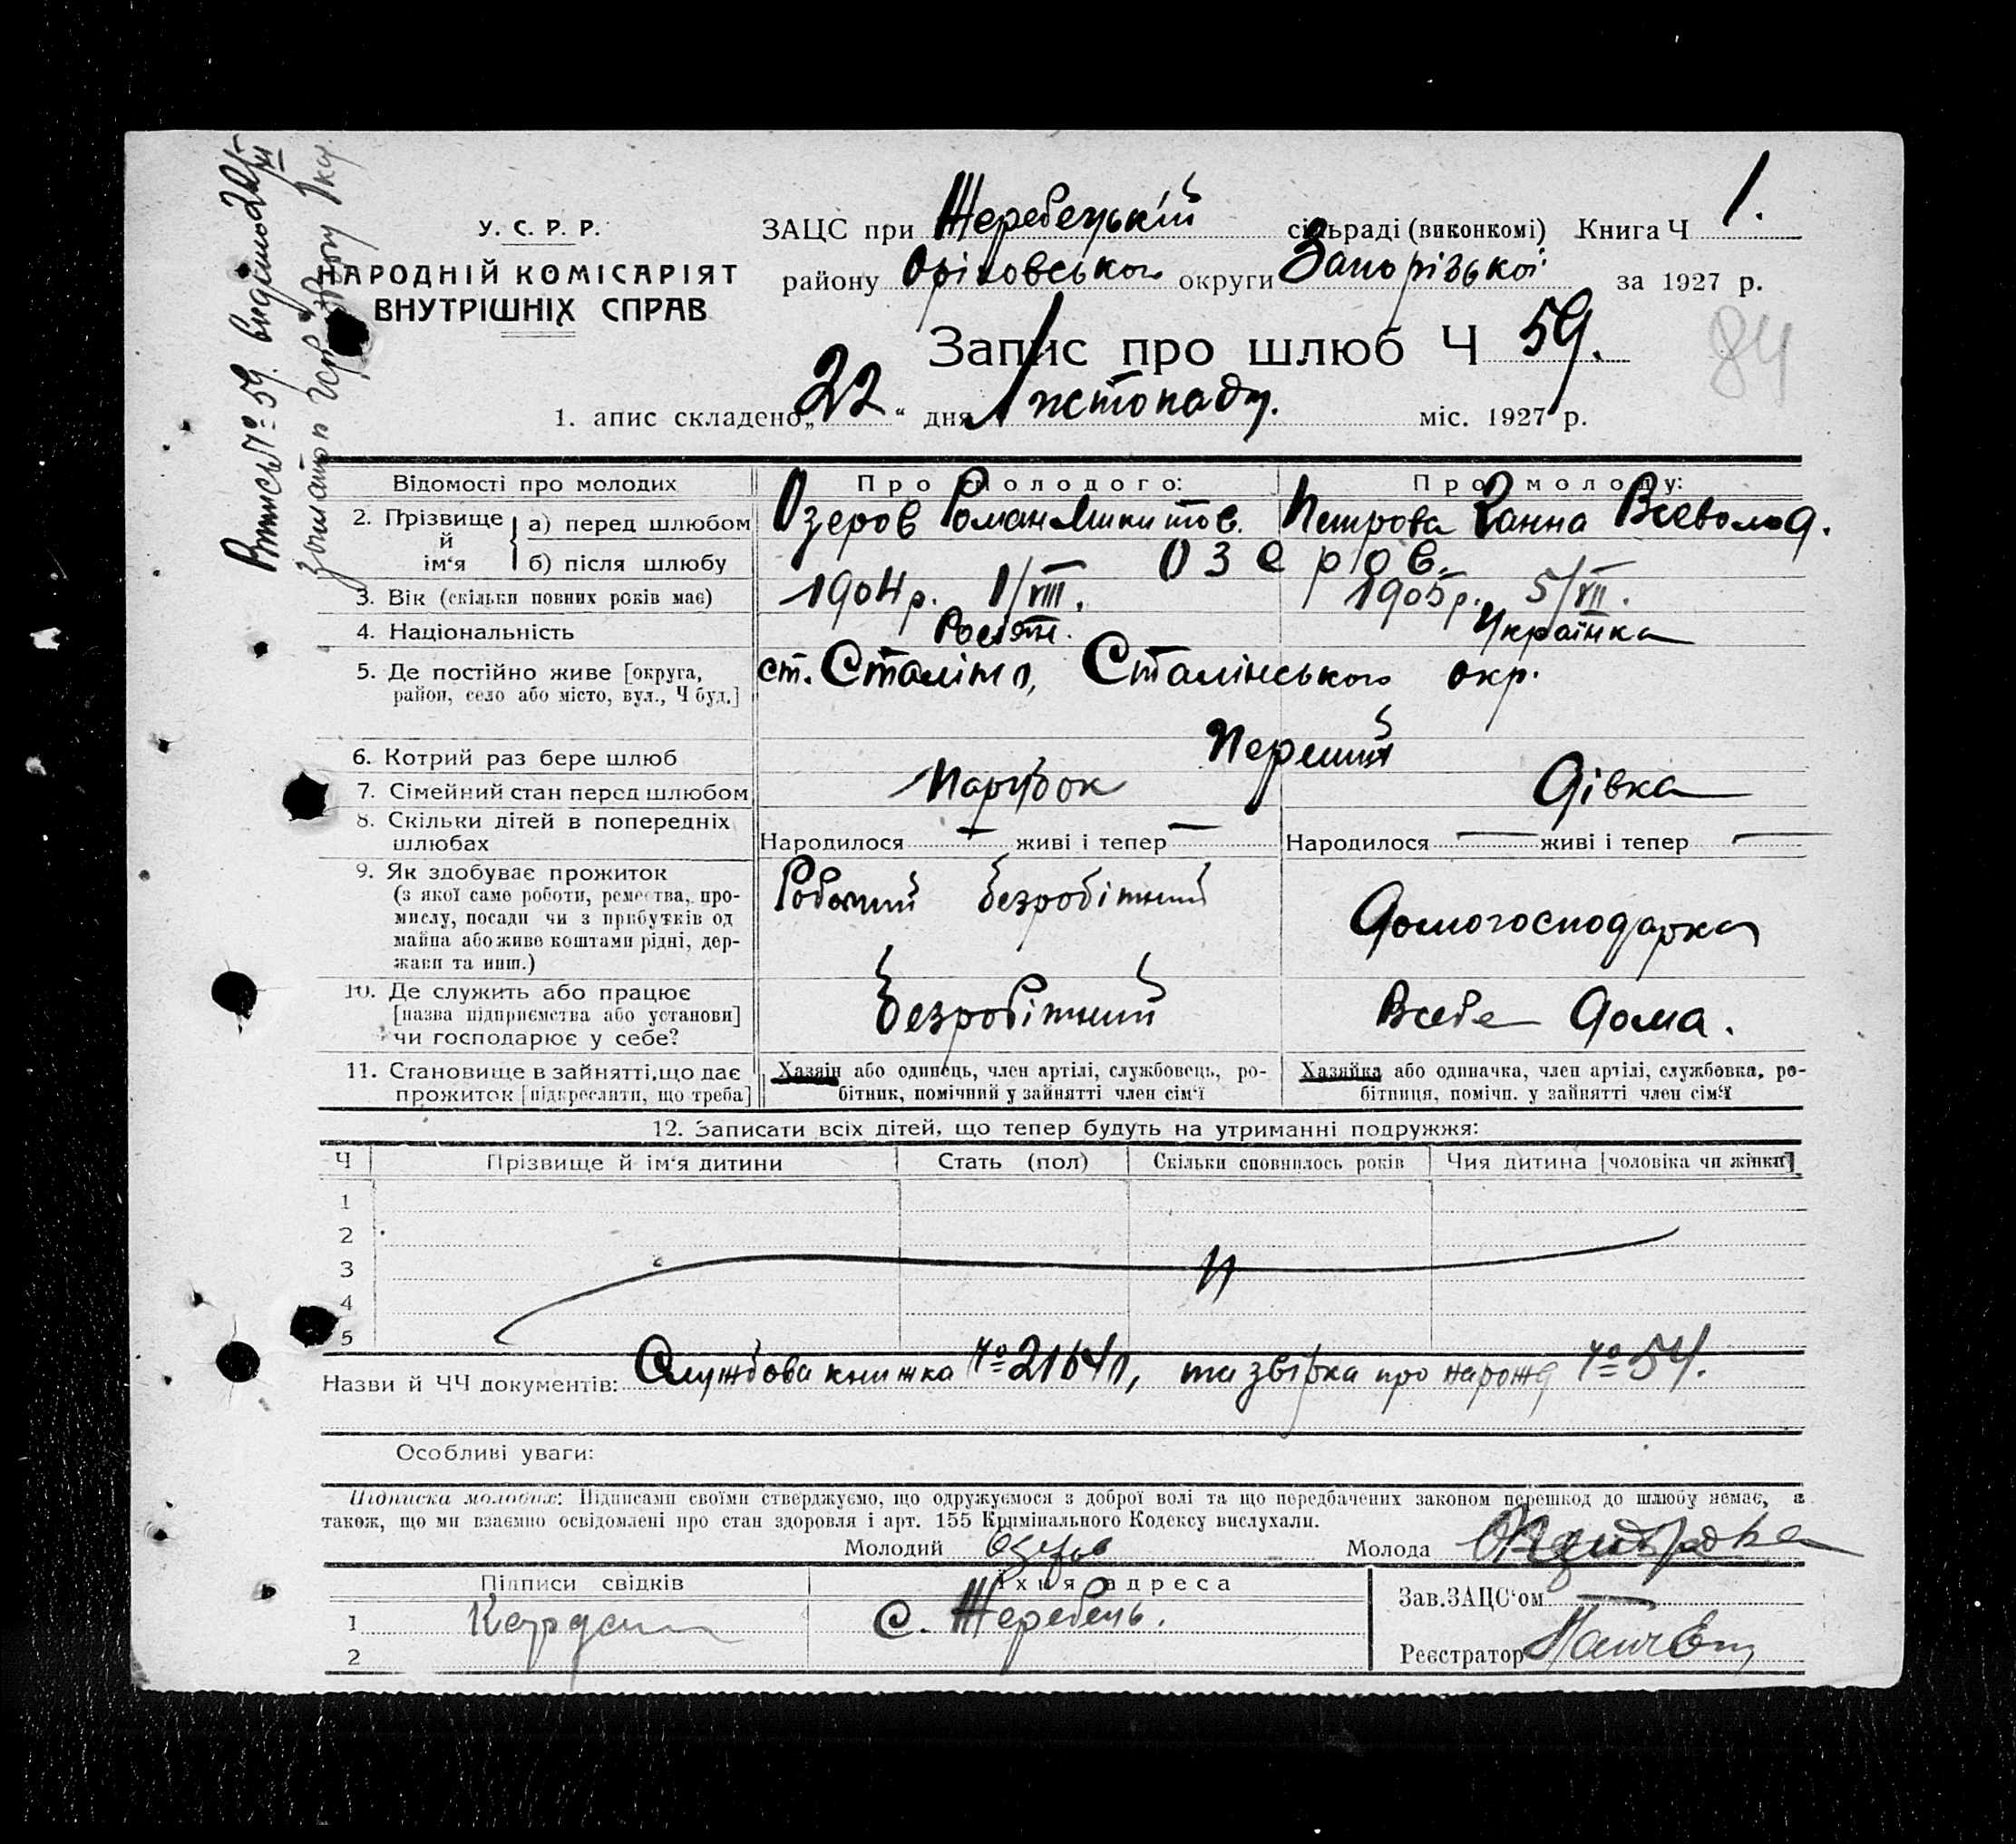 Виписъ № 59. видано 22/XI
У. С. Р. Р.
НАРОДНІЙ КОМІСАРІЯТ
ВНУТРІШНІХ СПРАВ
ЗАЦС при Жеребецькій сільраді (виконкомі) Книга Ч 1.
району Оріховського округи Запорізької за 1927 р.
Запис про шлюб Ч 59.
84
1. апис складено „22“ дня Листопаду. міс. 1927 р.
Відомості про молодих Про молодого: Про молоду:
2. Прізвище й ім'я а) перед шлюбом Озеров Роман Петрова Ганна Всеволод.
б) після шлюбу Озеров.
3. Вік (скільки повних років має) 1904 р. 1/VIII. 1905 р. 5/VII.
4. Національність Росіян. Українка
5. Де постійно живе [округа, район, село або місто, вул., Ч буд.] ст. Сталіно, Сталінського окр.
6. Котрий раз бере шлюб Перший
7. Сімейний стан перед шлюбом Парубок Дівка
8. Скільки дітей в попередніх шлюбах Народилося — живі і тепер — Народилося — живі і тепер —
9. Як здобуває прожиток Робочий безробітний Домогосподарка
(з якої саме роботи, ремества, про-
мислу, посади чи з прибутків од
майна або живе коштами рідні, дер-
жави та инш.)
10. Де служить або працює Безробітний Всебе дома.
[назва підприємства або установи]
чи господарює у себе?
11. Становище в зайнятті, що дає Хазяін або одинець, член артілі, службовець, ро- Хазяйка або одиначка, член артілі, службовка, ро-
прожиток [підкреслити, що треба] бітник, помічний у зайнятті член сім'ї бітниця, помічн. у зайнятті член сім'ї
12. Записати всіх дітей, що тепер будуть на утриманні подружжя:
Ч Прізвище й ім'я дитини Стать (пол) Скільки сповнилось років Чия дитина [чоловіка чи жінки]
1
2
3
4
5
Назви й ЧЧ документів: Службова книжка № та звірка про нарожд № 54.
Особливі уваги:
Підписка молодих: Підписами своїми стверджуємо, що одружуємося з доброї волі та що передбачених законом перешкод до шлюбу немає, а
також, що ми взаємно освідомлені про стан здоровля і арт. 155 Кримінального Кодексу вислухали.
Молодий Озеров Молода
Підписи свідків Їхня адреса Зав. ЗАЦС'ом
1 с. Жеребець.
2 Реєстратор